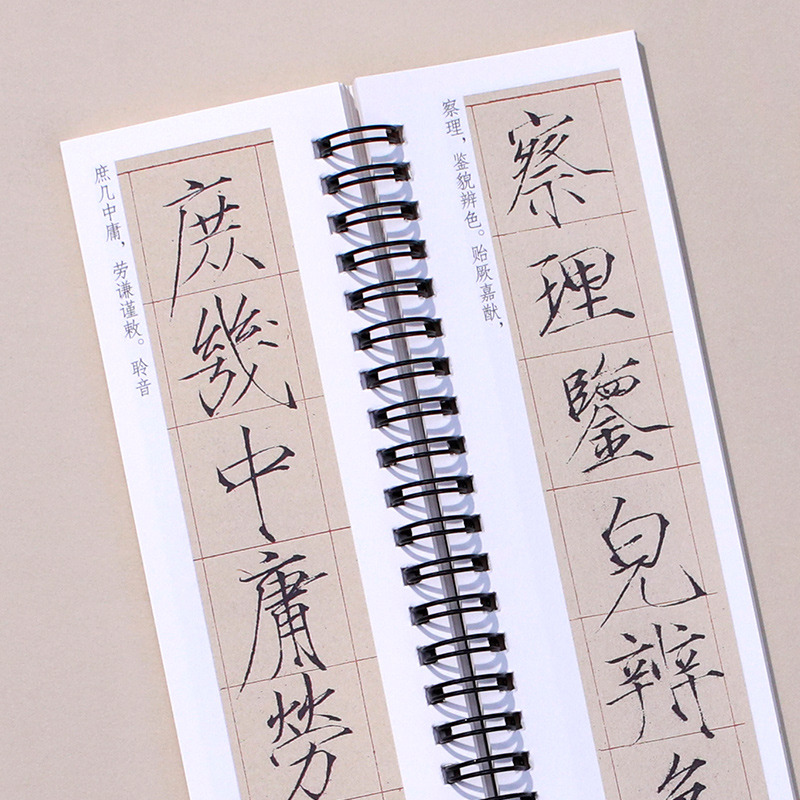 庶几中庸，劳谦谨敕。聆音
庶幾中庸勞
察理，鉴貌辨色。贻厥嘉猷，
察理鑒皃辨色